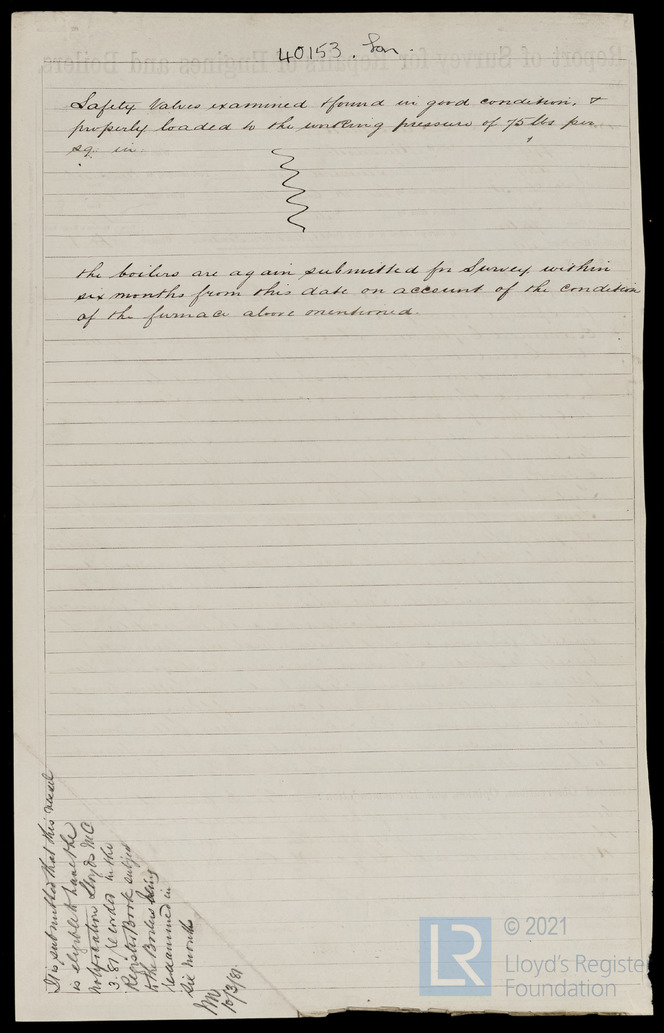 40153. Lon.
Safety Valves examined & found in good condition, &
properly loaded to the working pressure of 75 lbs per
sq. in.
the boilers are again submitted for Survey within
six months from this date on account of the condition
of the furnace above mentioned.
It is submitted that this vessel
is eligible to have the
notification Lloyds MC
3.81 recorded in the
Register Book subject
to the Boilers being
reexamined in
six months
10/3/81
© 2021
LR
Lloyd's Register
Foundation